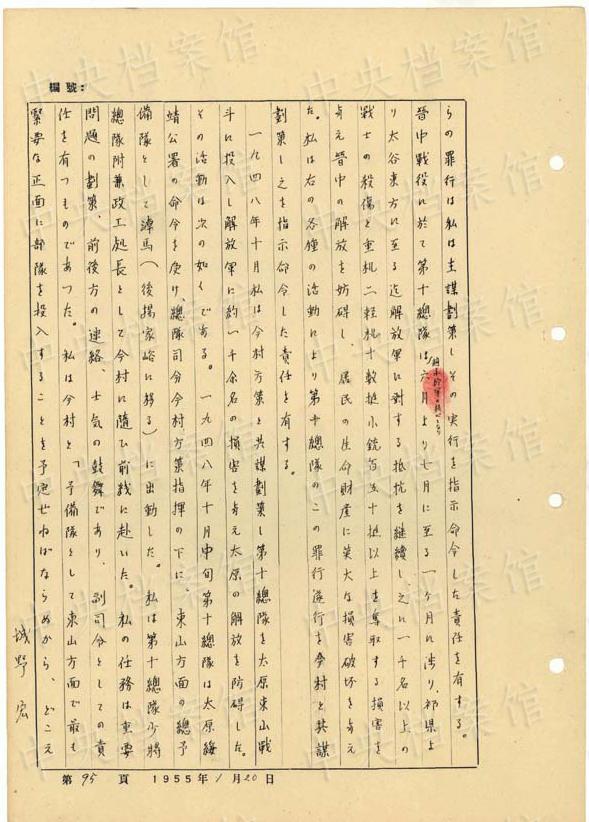 編號：
らの罪行は私は主謀劃策しその実行を指示命令した責任を有する。
晉中戦役に於て第十總隊は六月より七月に至る一ケ月に渉り、祁県よ
り太谷東方に至る迄解放軍に対する抵抗を継續し、之に一千名以上の
戦士の殺傷と重机二軽机十数挺小銃百五十挺以上を奪取する損害を
与え晉中の解放を妨碍し、居民の生命財産に莫大な損害破坏を与え
た。私は右の各種の活動により第十總隊のこの罪行遂行を今村と共謀
劃策し之を指示命令した責任を有する。
一九四八年十月私は今村方策と共謀劃策し第十總隊を太原東山戦
斗に投入し解放軍に約一千余名の損害を与え太原の解放を防碍した。
その活動は次の如くである。一九四八年十月中旬第十總隊は太原綏
靖公署の命令を受け、總隊司令今村方策指揮の下に、東山方面の總予
備隊として淖馬（後楊家峪に移る）に出動した。私は第十總隊少将
總隊附兼政工処長として今村に隨ひ前线に赴いた。私の任務は重要
問題の劃策、前後方の連絡、士気の鼓舞であり、副司令としての責
任を有つものであつた。私は今村と「予備隊として東山方面で最も
緊要な正面に部隊を投入することを予定せねばならぬから、どこえ
城野宏
第 95 頁 1955年 1月 20日
中央档案馆